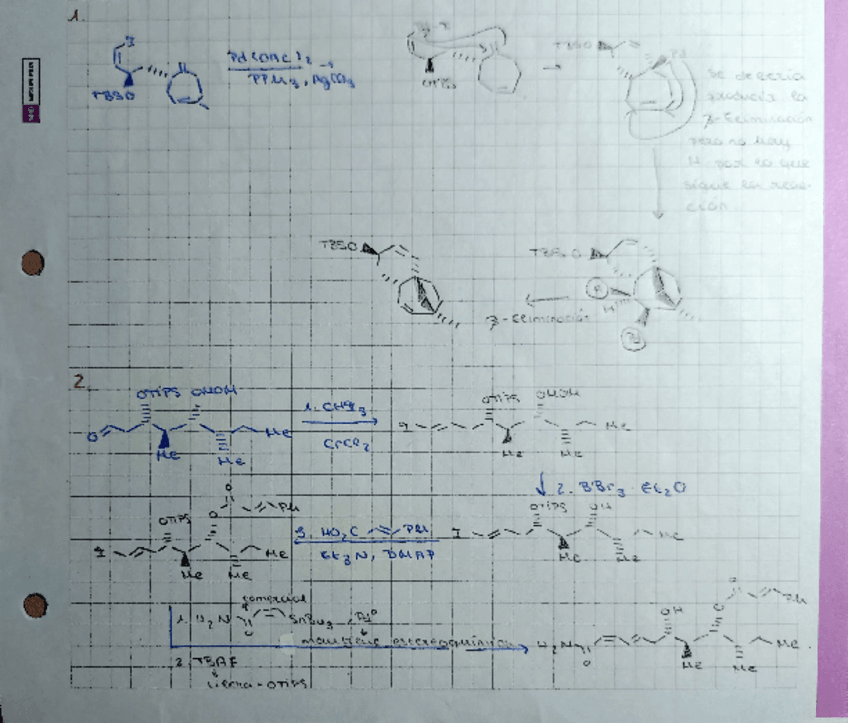 1.
I
TBSO
Pd(OAc)2
PPh3, AgCO3
I
OTBS
TBSO
Pd
se debería
producir la
β-eliminación
pero no hay
H por lo que
sigue la reac-
ción.
TBSO
TBSO
H
H
Pd
β-eliminación
2.
OTIPS OMOM
O
Me
Me
Me
1. CHI3
CrCl2
OTIPS OMOM
I
Me
Me
Me
2. BBr3 Et2O
O
O
Ph
OTIPS
I
Me
Me
Me
3. HO2C Ph
Et3N, DMAP
OTIPS OH
I
Me
Me
Me
comercial
1. H2N SnBu3, Pd0
O
mantiene estereoquímica
2. TBAF
libera -OTIPS
O
Ph
OH O
H2N
O
Me
Me
Me